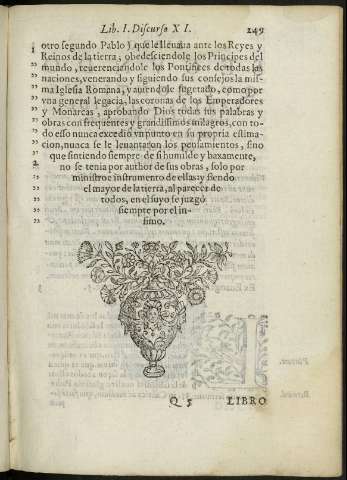 Lib. I. Discurso XI. 249
otro segundo Pablo) que le lleuaua ante los Reyes y
Reinos de la tierra; obedesciendole los Principes del
mundo, reuerenciandole los Pontifices de todas las
naciones, venerando y siguiendo sus consejos la mis-
ma Iglesia Romana, y auiendose sugetado, como por
vna general legacia, las coronas de los Emperadores
y Monarcas, aprobando Dios todas sus palabras y
obras con frequentes y grandissimos milagros, con to-
do esso nunca excedió vn punto en su propria estima-
cion, nunca se le leuantaron los pensamientos, sino
que sintiendo siempre de si humilde y baxamente,
no se tenia por author de sus obras, solo por
ministro e instrumento de ellas: y siendo
el mayor de la tierra, al parecer de
todos, en el suyo se juzgò
siempre por el in-
fimo.
Q 5 LIBRO